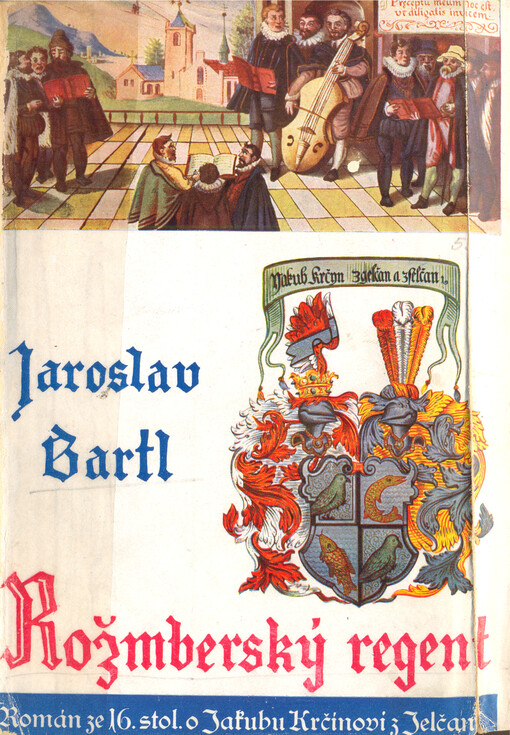 Præceptũ meum hoc est,
vt diligatis invicem.
Yakub Krčyn zgelčan a zſelčan:
Jaroslav
Bartl
Rožmberský regent
Román ze 16. stol. o Jakubu Krčínovi z Jelčan